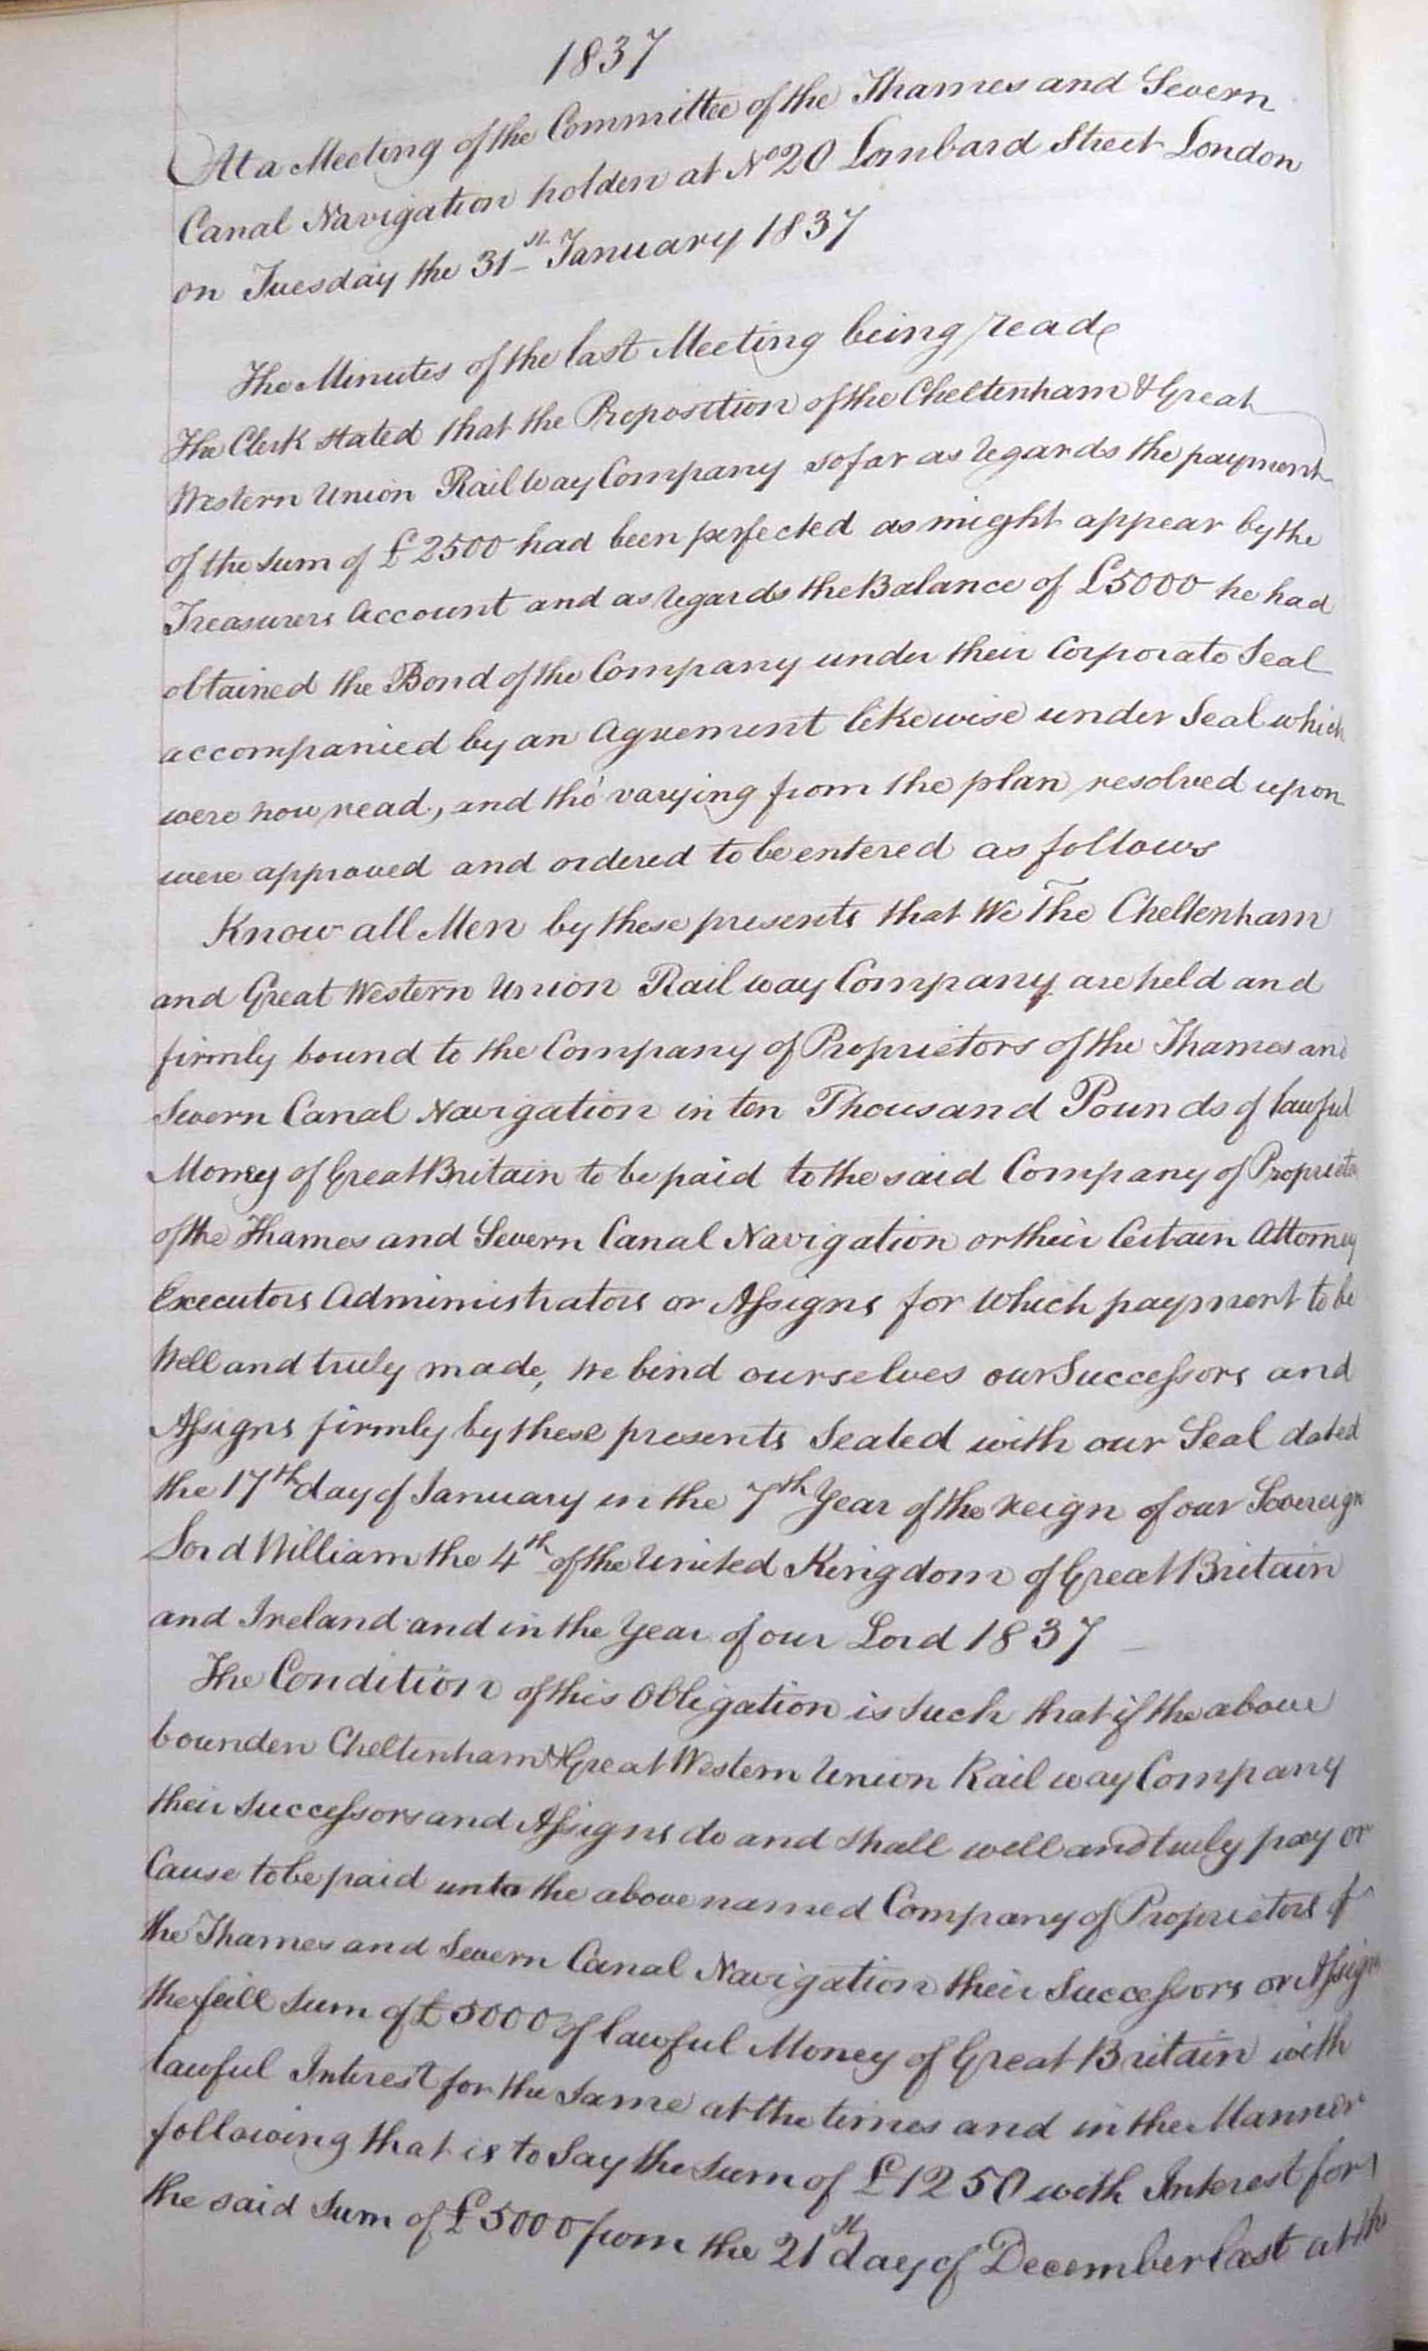 1837
At a Meeting of the Committee of the Thames and Severn
Canal Navigation holden at No 20 Lombard Street London
on Tuesday the 31st January 1837
The Minutes of the last Meeting being read
The Clerk stated that the Proposition of the Cheltenham & Great
Western Union Railway Company so far as regards the payment
of the sum of £2500 had been perfected as might appear by the
Treasurers Account and as regards the Balance of £5000 he had
obtained the Bond of the Company under their Corporate Seal
accompanied by an Agreement likewise under Seal which
were now read, and tho' varying from the plan resolved upon
were approved and ordered to be entered as follows
Know all Men by these presents that We The Cheltenham
and Great Western Union Railway Company are held and
firmly bound to the Company of Proprietors of the Thames and
Severn Canal Navigation in ten Thousand Pounds of lawful
Money of Great Britain to be paid to the said Company of Proprietors
of the Thames and Severn Canal Navigation or their Certain Attorney
Executors Administrators or Assigns for which payment to be
Well and truly made, we bind ourselves our Successors and
Assigns firmly by these presents Sealed with our Seal dated
the 17th day of January in the 7th Year of the reign of our Sovereign
Lord William the 4th of the United Kingdom of Great Britain
and Ireland and in the Year of our Lord 1837
The Condition of this Obligation is such that if the above
bounden Cheltenham & Great Western Union Railway Company
their Successors and Assigns do and shall well and truly pay or
Cause to be paid unto the above named Company of Proprietors of
the Thames and Severn Canal Navigation their Successors or Assigns
the full sum of £5000 of lawful Money of Great Britain with
lawful Interest for the Same at the times and in the Manner
following that is to Say the Sum of £1250 with Interest for
the said Sum of £5000 from the 21st day of December last at the